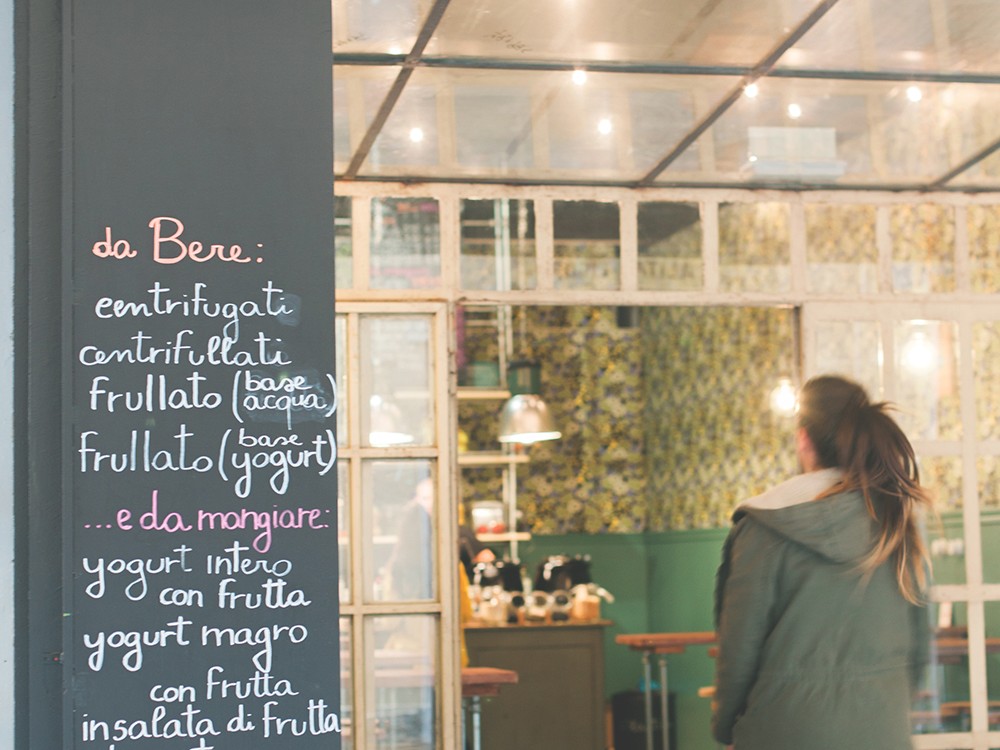 da Bere:
centrifugati
centrifullati
frullato (base acqua)
frullato (base yogurt)
...e da mangiare:
yogurt intero
con frutta
yogurt magro
con frutta
insalata di frutta